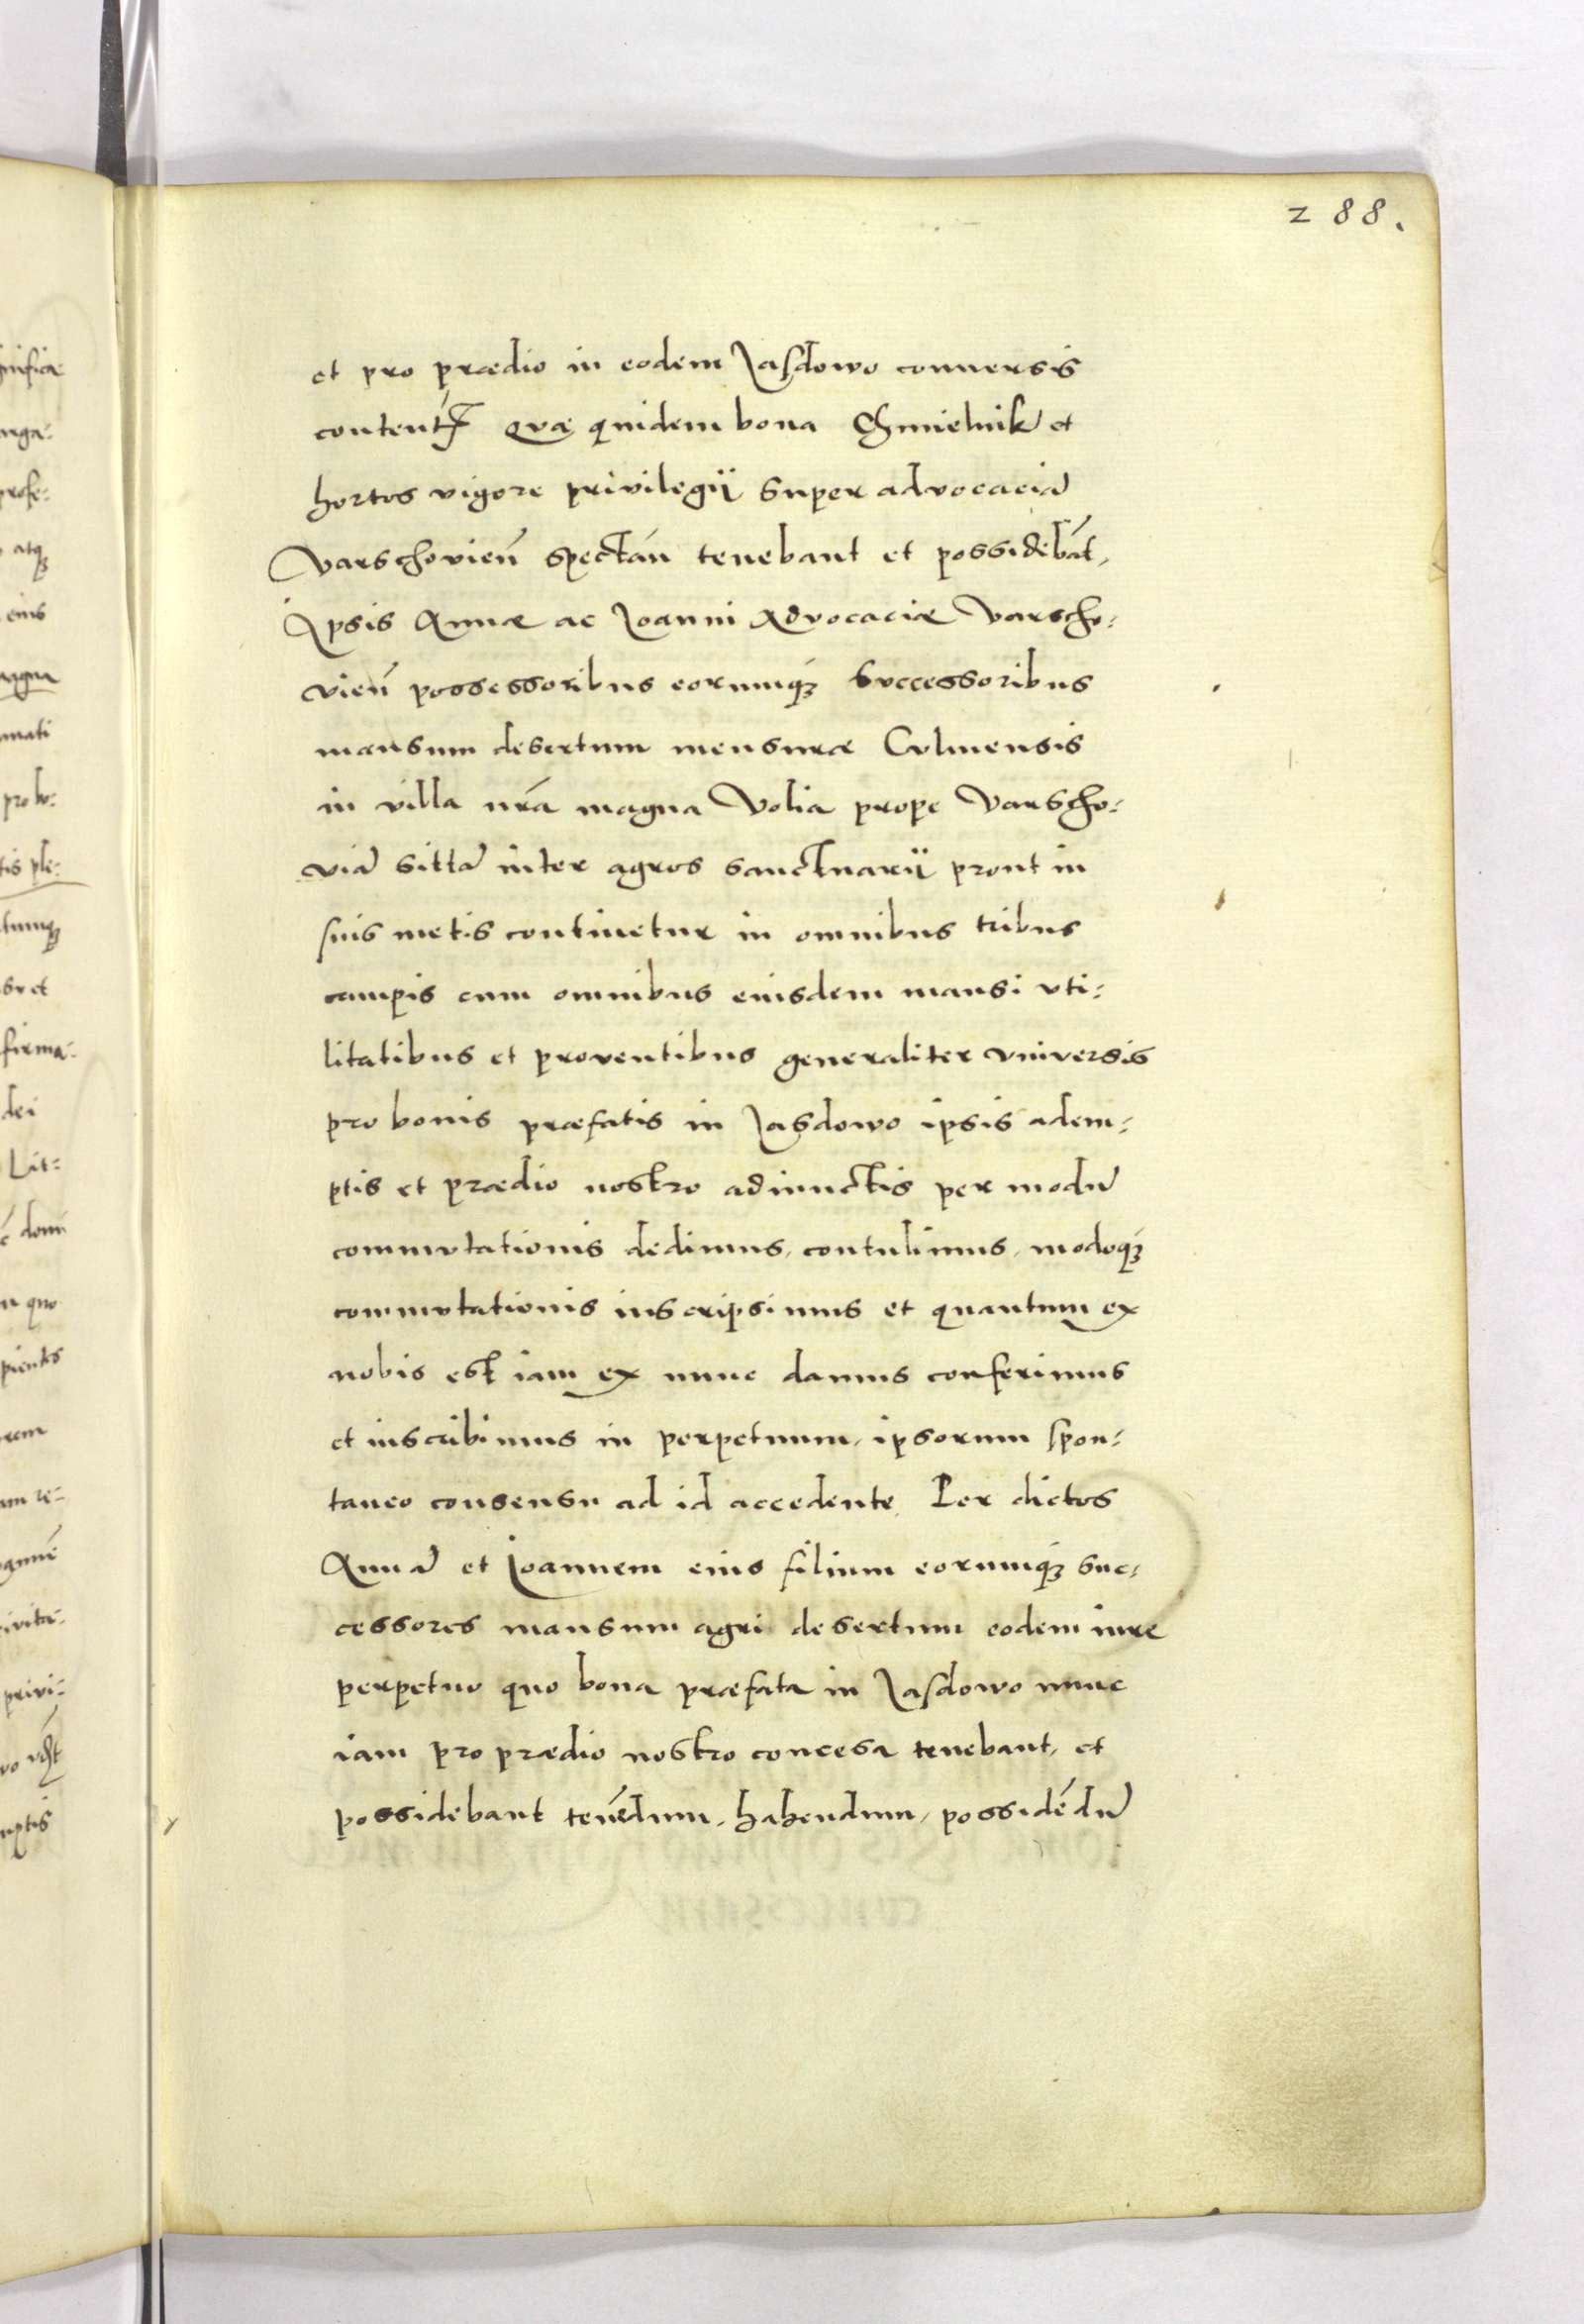 288.
et pro prædio in eodem Jasdowo conuersis
Quæ quidem bona Chmielnik et
hortos vigore privilegii super advocaciã
Varschovieñ spectañ tenebant et possidebãt,
Ipsis Annæ ac Joanni Advocaciæ Varscho:
vieñ possessoribus eorumq3 successoribus
mansum desertum mensuræ Culmensis
in villa nrã magna Volia prope Varscho:
viã sittã inter agros sanctuarii prout in
suis metis continetur in omnibus tribus
campis cum omnibus eiusdem mansi vti:
litatibus et proventibus generaliter vniversis
pro bonis præfatis in Jasdowo ipsis adem:
ptis et prædio nostro adiunctis per modũ
commvtationis dedimus, contulimus, modoq3
commvtationis inscripsimus et quantum ex
nobis est iam ex nunc damus conferimus
et inscribimus in perpetuum, ipsorum spon:
taneo consensu ad id accedente, Per dictos
Annã et Joannem eius filium eorumq3 suc:
cessores mansum agri desertum eodem iure
perpetuo quo bona præfata in Jasdowo nunc
iam pro prædio nostro concesa tenebant, et
possidebant tenẽdum, habendum, possidẽdũ